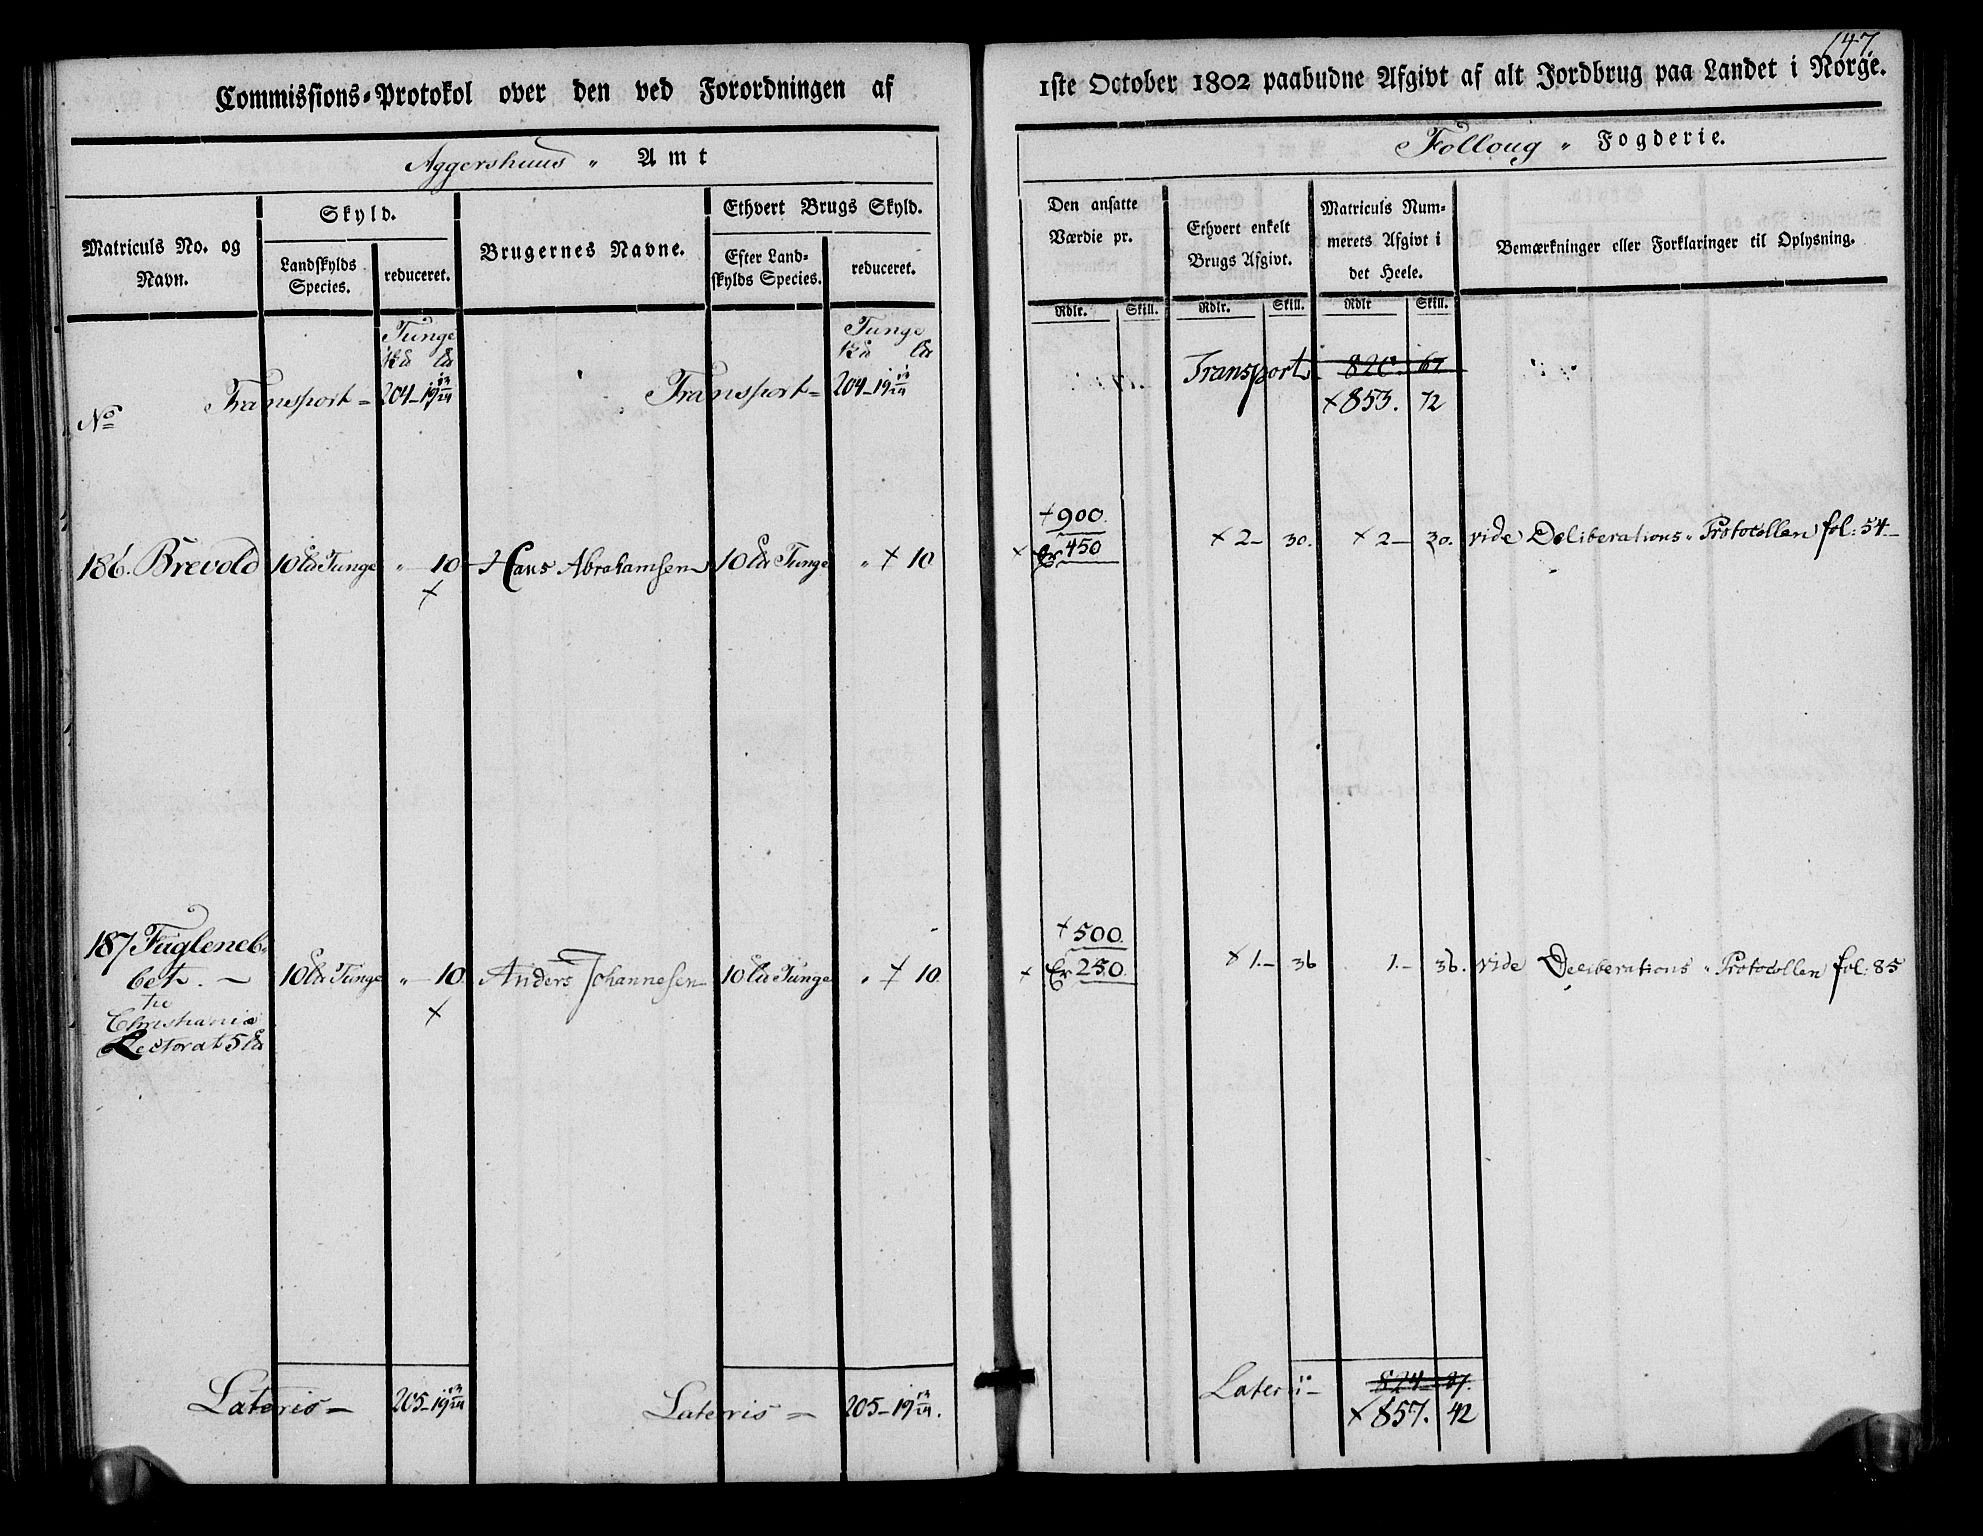 147.
Commissions-Protokol over den ved Forordningen af
1ste October 1802 paabudne Afgivt af alt Jordbrug paa Landet i Norge.
Aggershuus „ Amt
Folloug „ Fogderie.
Matriculs No. og Navn.
Skyld.
Landskylds Species.
reduceret.
Brugernes Navne.
Ethvert Brugs Skyld.
Efter Landskylds Species.
reduceret.
Den ansatte Værdie pr.
Ethvert enkelt Brugs Afgivt.
Matriculs Nummerets Afgivt i det Heele.
Bemærkninger eller Forklaringer til Oplysning.
Rdlr. Skill. Rdlr. Skill. Rdlr Skill.
Tunge Tunge
No Transport = 204-19 13/24 Transport = 204-19 13/24 Transport 820. 67
+853. 72
+900.
186. Brevold 10 Tunge „ 10 Hans Abrahamsen 10 Tunge „ + 10 + Er 450 + 2- 30. + 2- 30. vide Deliberations „ Protocollen fol: 54
+
+500.
187 Fugleneb-
bet. - 10 Tunge „ 10. Anders Johannesen 10 Tunge „ + 10. + Er 250. + 1.- 36 1.- 36. vide Deliberations „ Protocollen fol: 85
+
til
Christiania
Lectorat 5
Lateris = 205-19 13/24 Lateris = 205-19 13/24. Lateris - 824 37.
+857. 42